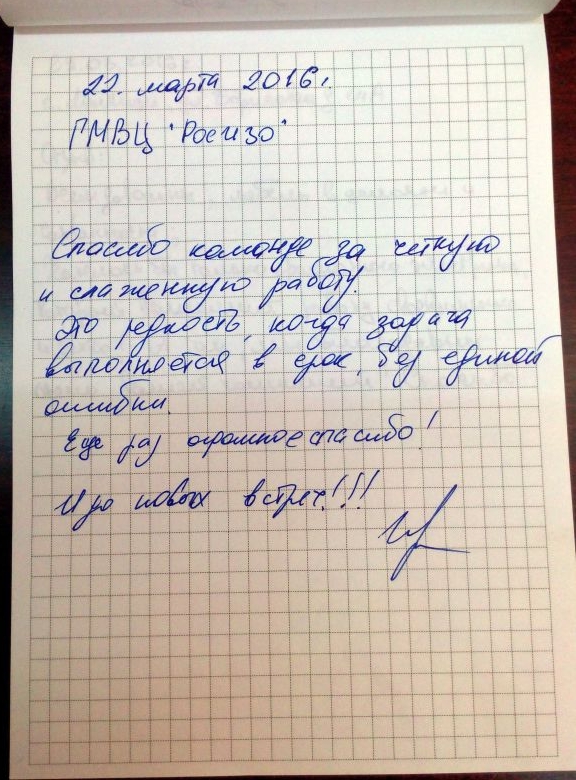 22. марта 2016г.
ГМВЦ "Росизо"
Спасибо команде за чёткую
и слаженную работу.
Это редкость, когда задача
выполняется в срок, без единой
ошибки.
Еще раз огромное спасибо!
И до новых встреч!!!